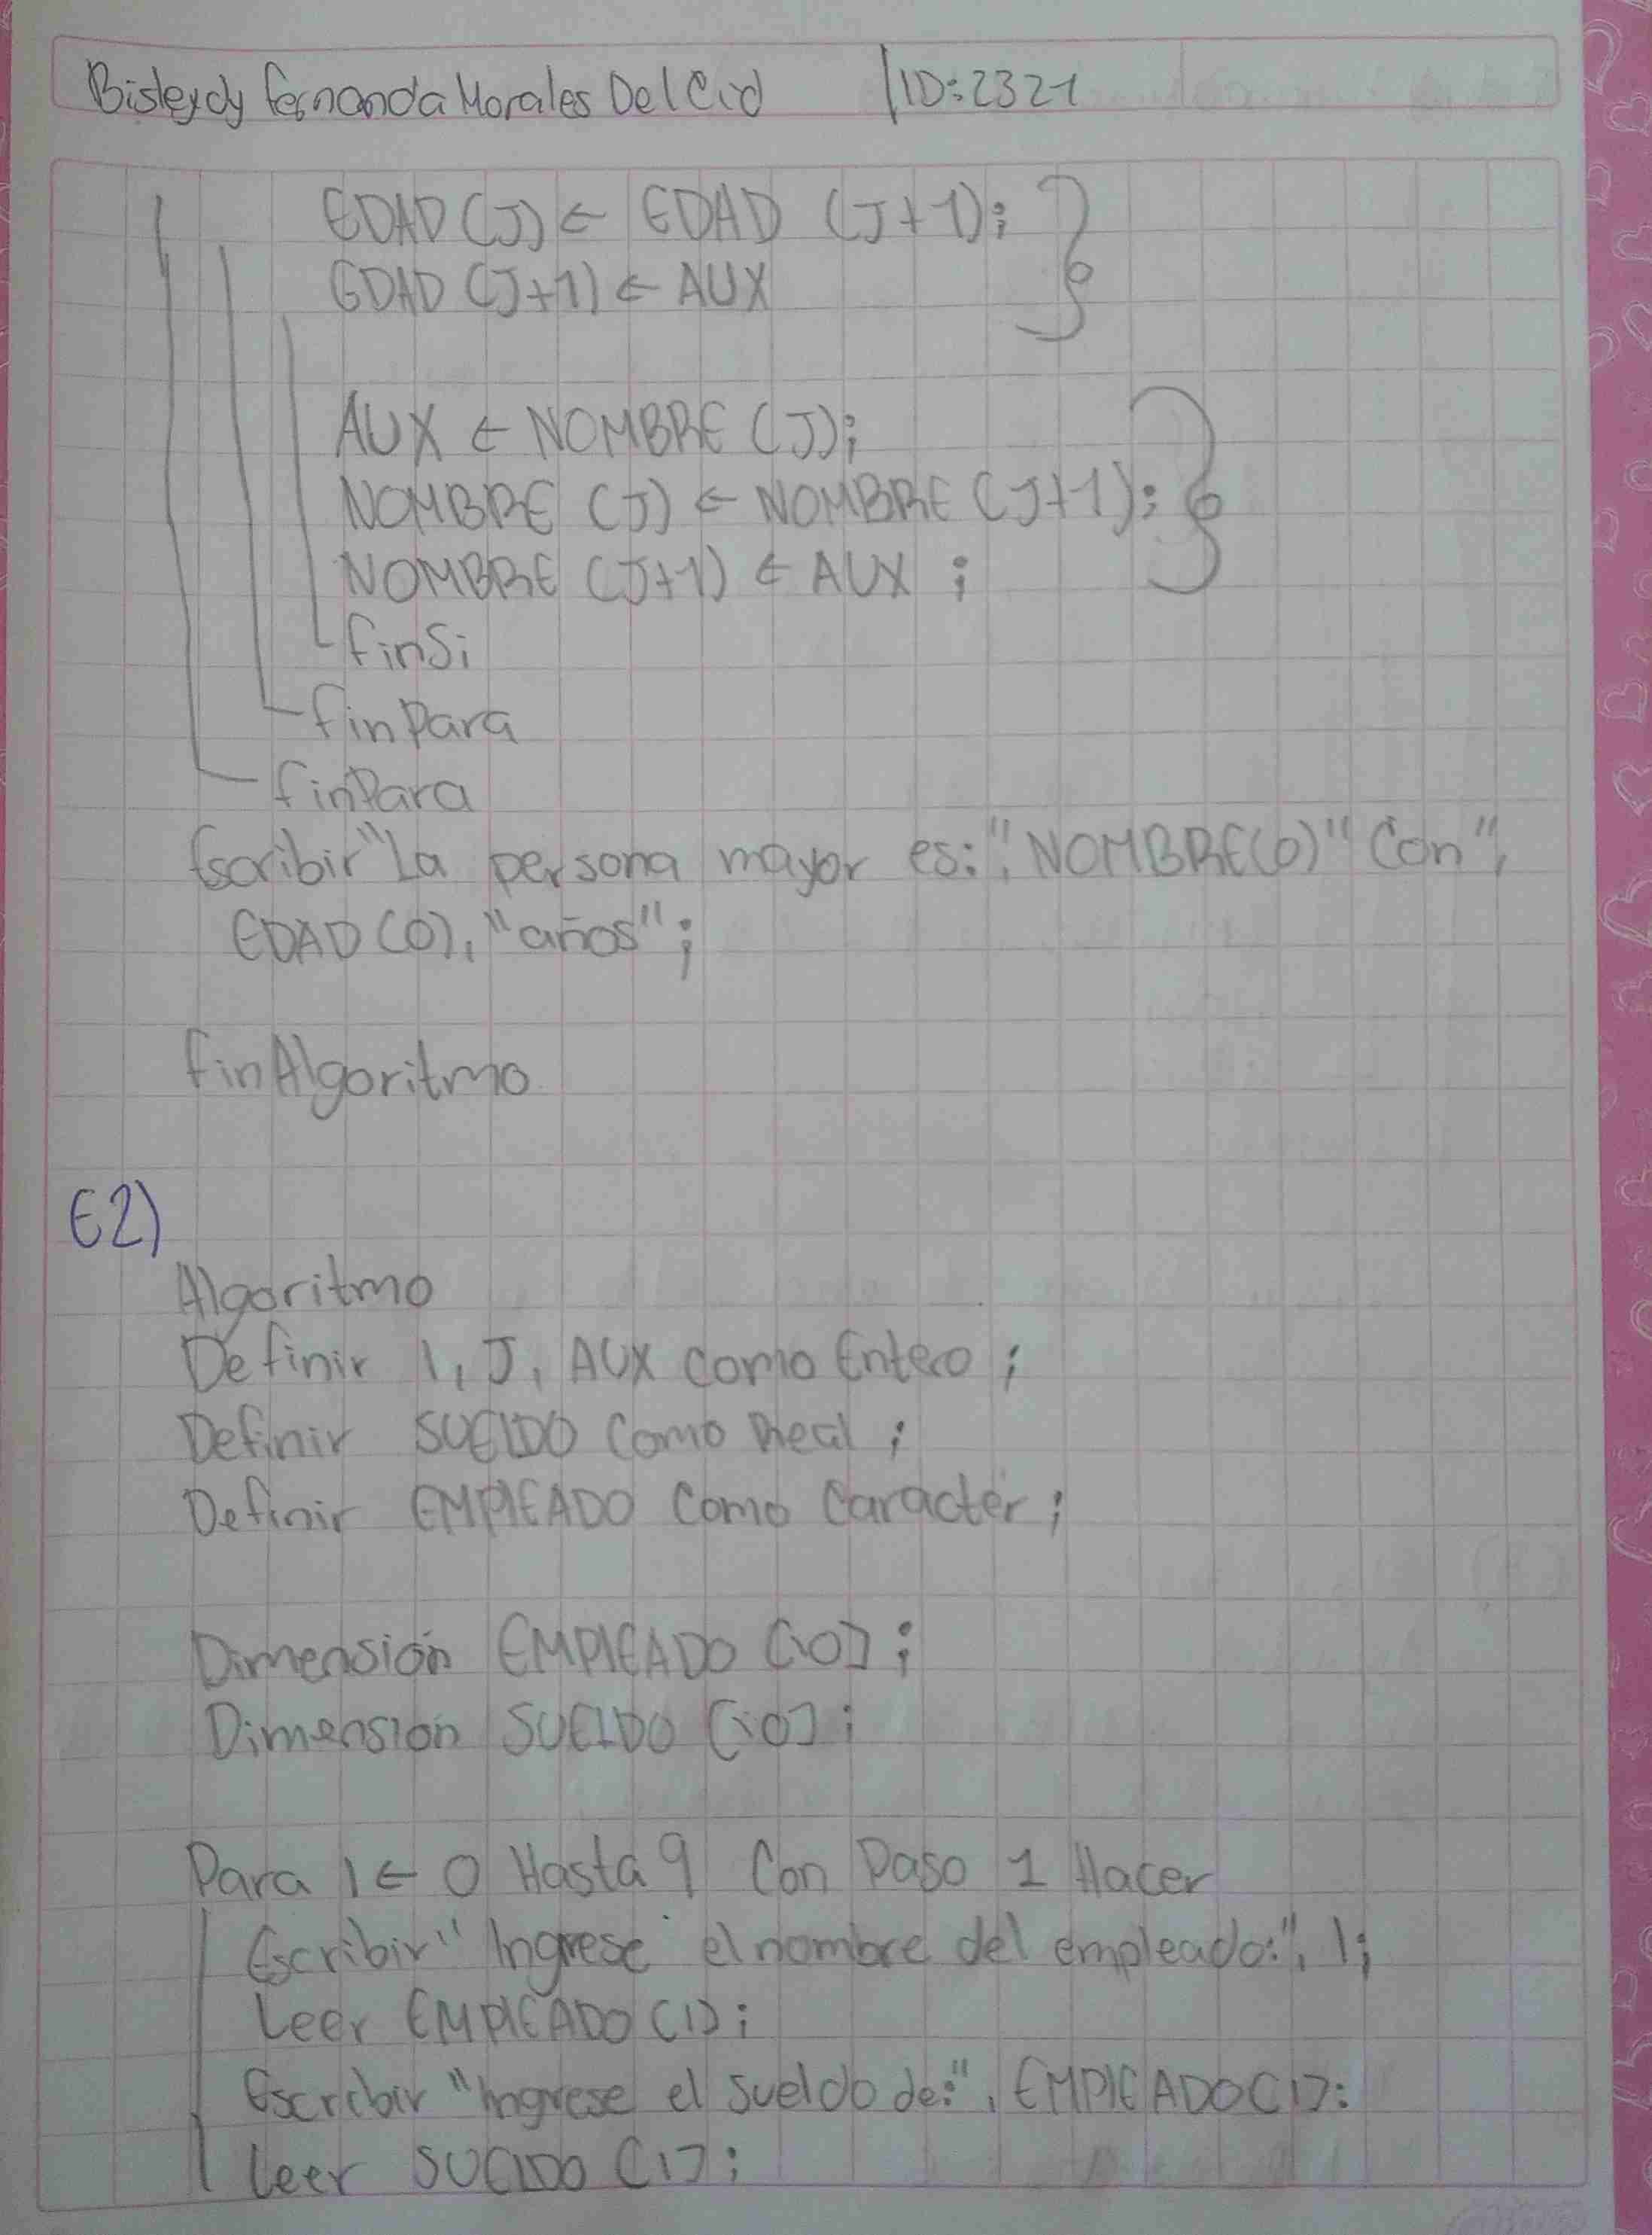 Bisleydy Fernanda Morales Del Cid |ID:2321
EDAD (J) ← EDAD (J+1);
EDAD (J+1) ← AUX
AUX ← NOMBRE (J);
NOMBRE (J) ← NOMBRE (J+1);
NOMBRE (J+1) ← AUX ;
finSi
finPara
finPara
Escribir "La persona mayor es:", NOMBRE(0) "Con",
EDAD (0), "años";
finAlgoritmo
E2)
Algoritmo
Definir I, J, AUX como Entero ;
Definir SUELDO Como Real ;
Definir EMPLEADO Como Caracter ;
Dimensión EMPLEADO [10] ;
Dimensión SUELDO [10] ;
Para I ← 0 Hasta 9 Con Paso 1 Hacer
Escribir "Ingrese el nombre del empleado:", I;
Leer EMPLEADO [I] ;
Escribir "Ingrese el sueldo de:", EMPLEADO [I];
Leer SUELDO [I] ;